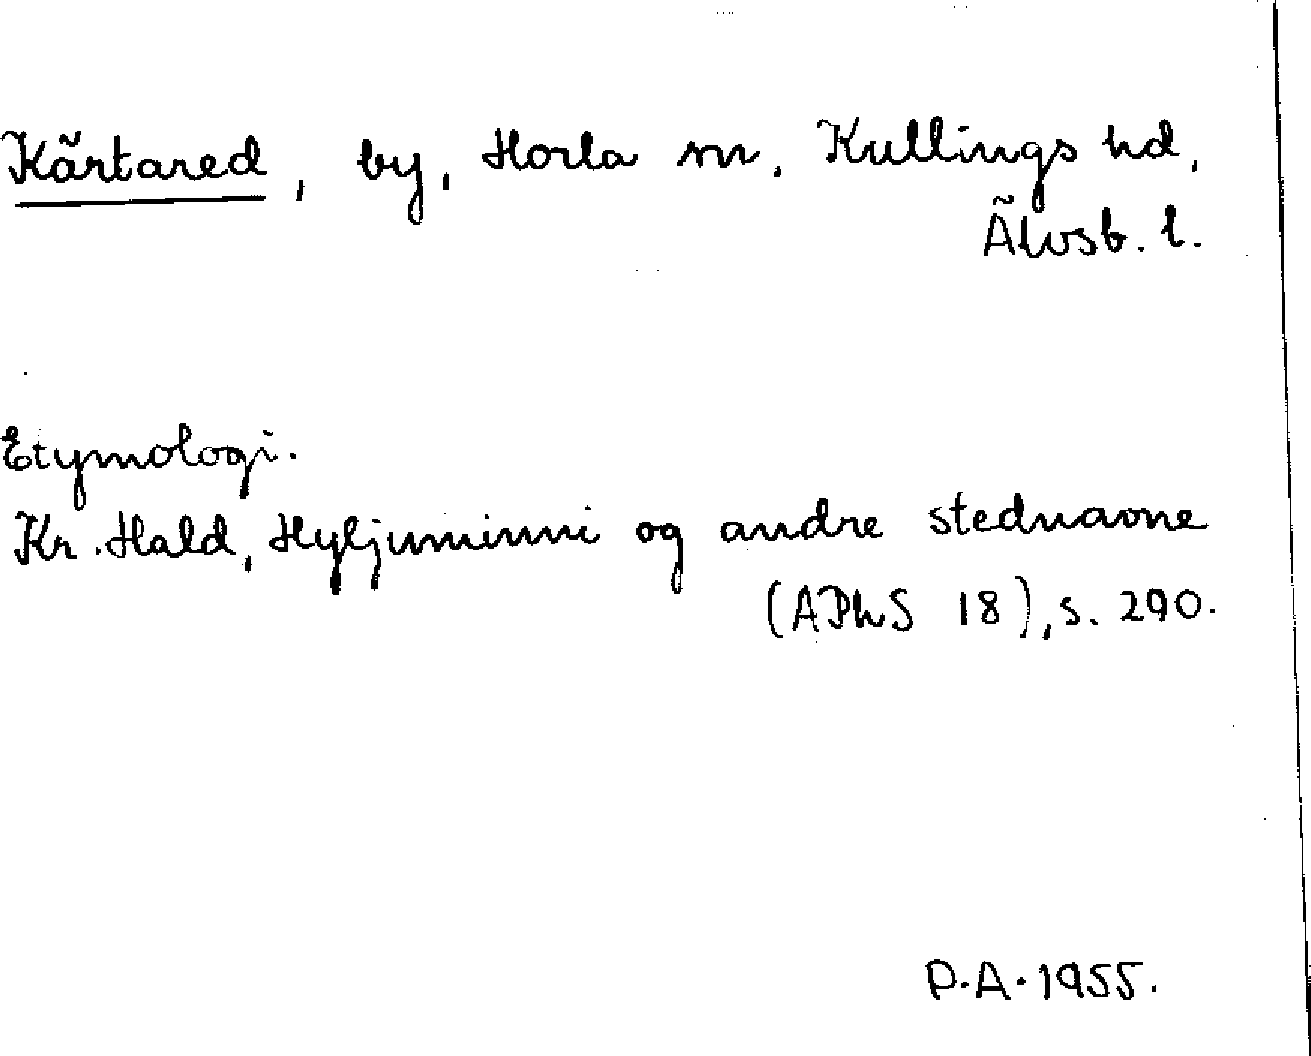 Kärtared, by, Horla sn, Kullings hd,
Älvsb. l.
Etymologi.
Kr. Hald, Hyljuminni og andre stednavne
(APhS 18), s. 290.
P.A. 1955.